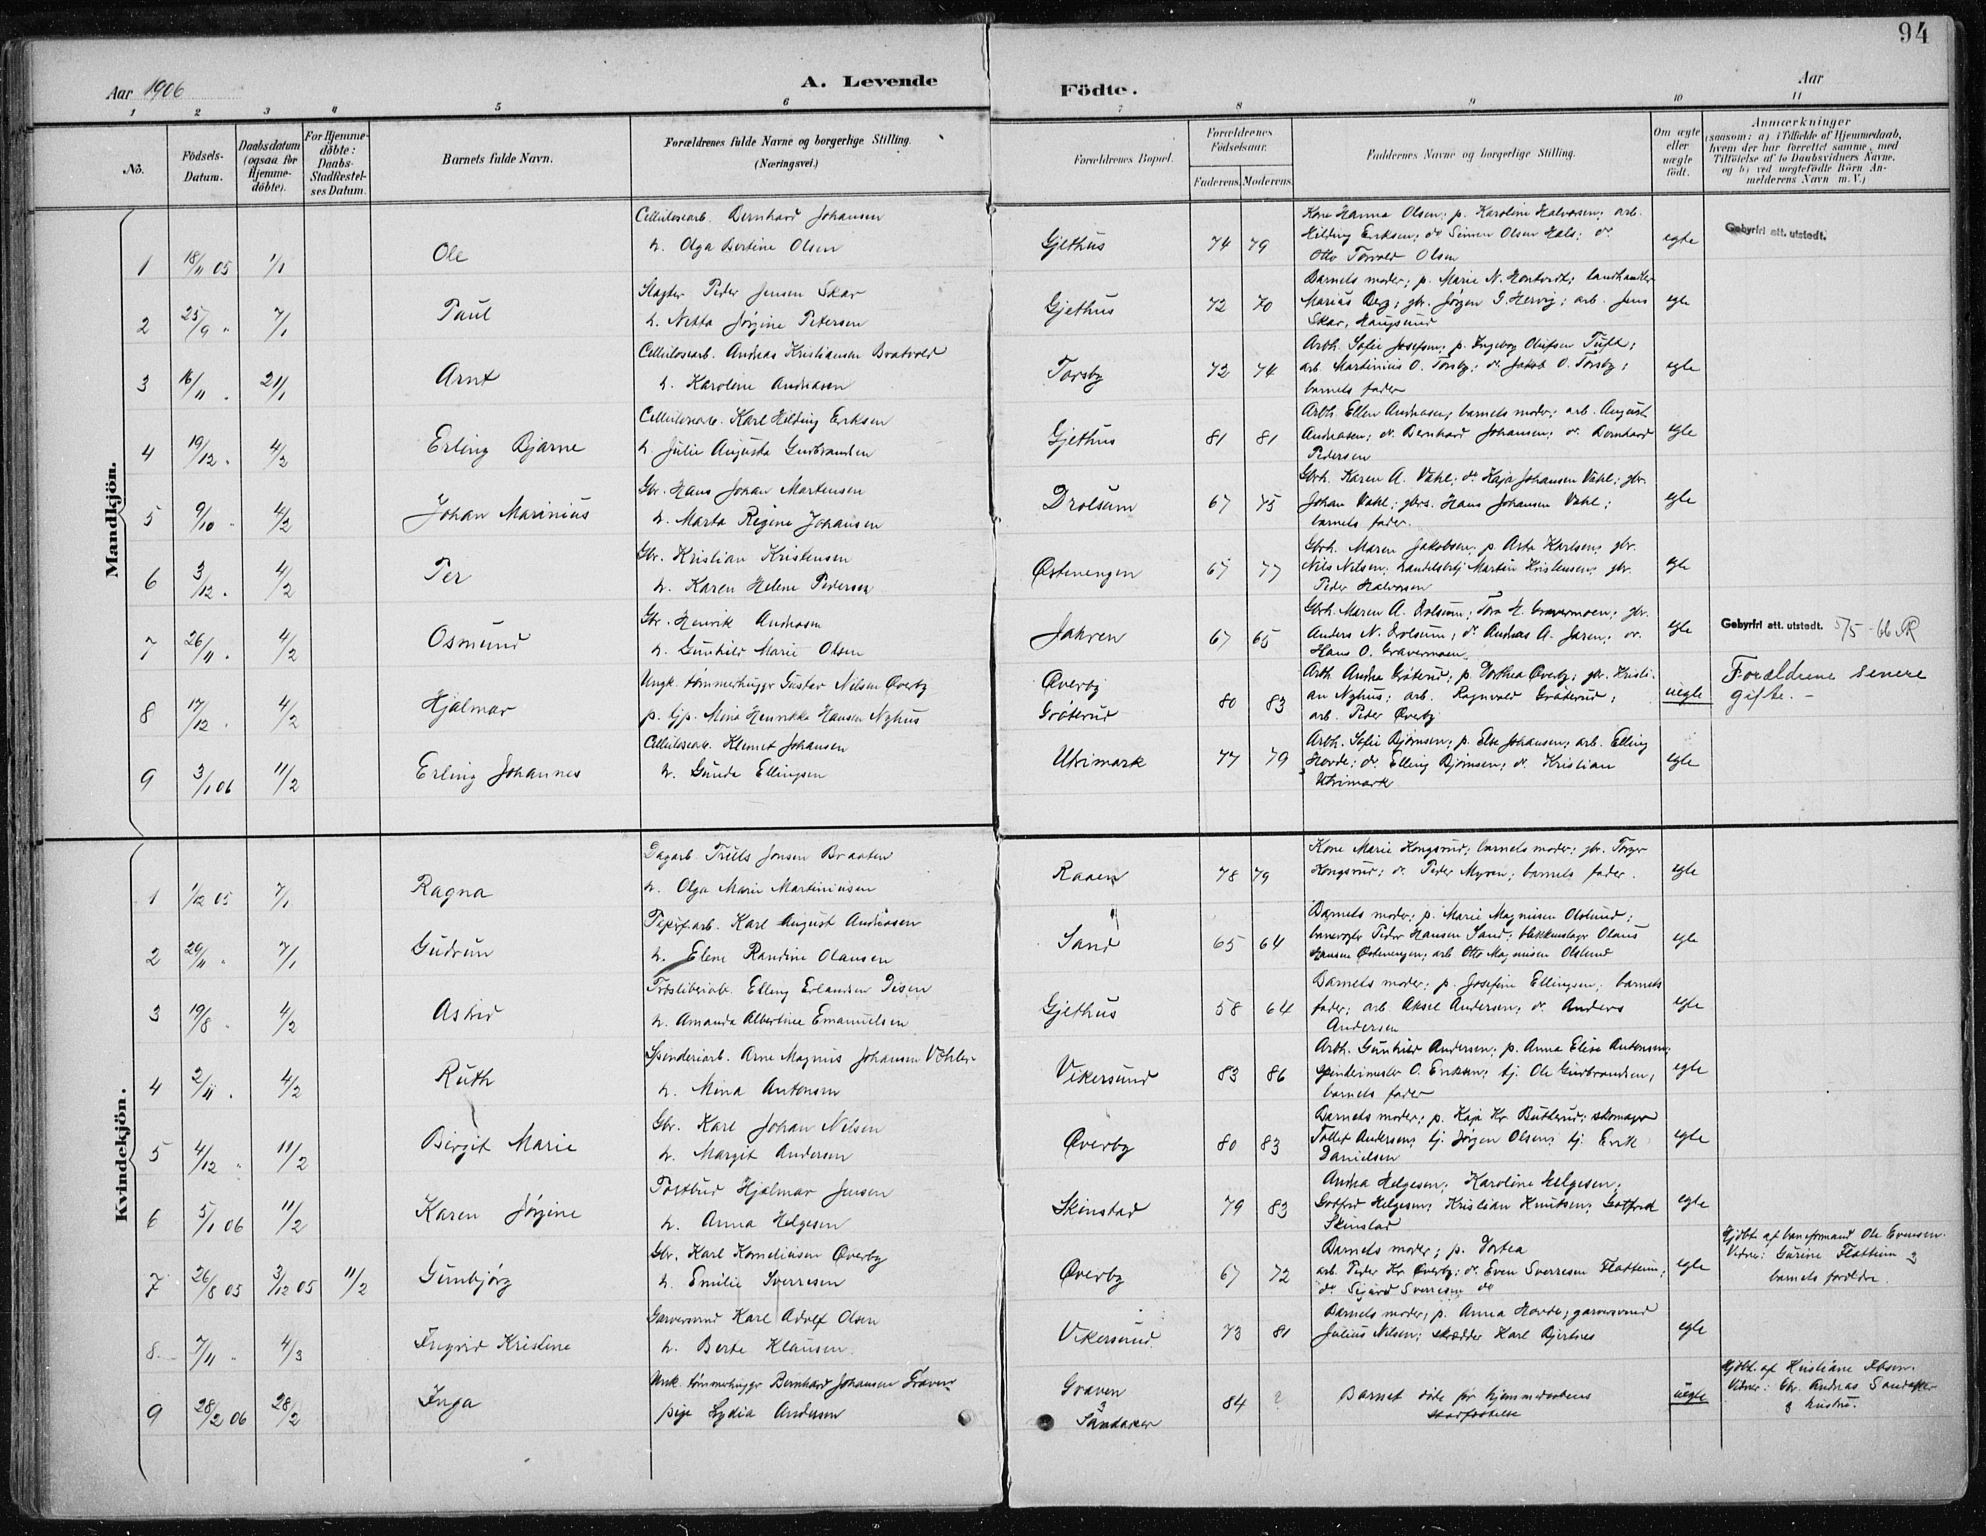 94
Aar 1906
A. Levende Födte.
Aar
1 2 3 4 5 6 7 8 9 10 11
No.
Födsels-Datum.
Daabsdatum (ogsaa for Hjemme-döbte).
For Hjemme-döbte: Daabs-Stadfæstel-ses Datum.
Barnets fulde Navn.
Forældrenes fulde Navne og borgerlige Stilling. (Næringsvei.)
Forældrenes Bopæl.
Forældrenes Födselsaar.
Faderens. Moderens.
Faddernes Navne og borgerlige Stilling.
Om ægte eller uægte födt.
Anmærkninger
(saasom: a) i Tilfælde af Hjemmedaab, hvem der har forrettet samme, med Tilföielse af to Daabsvidners Navne, og b) ved uægtefödte Börn An-melderens Navn m. V.)
Mandkjön.
1 18/11 05 1/1 Ole
Cellulosearb. Bernhard Johansen
h. Olga Bertine Olsen
Gjethus 74 79
Kone Hanna Olsen; p. Karoline Halvorsen; arb.
Hilding Eriksen; do Simen Olsen Hals; do
Otto Torvald Olsen
egte
Gebyrfri att. utstedt.
2 25/9 " 7/1 Paul
Slagter Peder Jensen Skar
h. Netta Jørgine Petersen
Gjethus 72 70
Barnets moder; p. Marie N. Hontvedt; landhandler
Marius Berg; gbr. Jørgen G. Hervig; arb. Jens
Skar, Haugsund
egte
3 16/11 " 21/1 Arnt
Cellulosearb. Andreas Kristiansen Bratvold
h. Karoline Andreasen
Torsby 72 74
Arbh. Sofie Josefsen; p. Ingeborg Olufsen Tuft;
arb. Martinius O. Torsby; do Jakob O. Torsby;
barnets fader
egte
4 19/12 " 4/2 Erling Bjarne
Cellulosearb. Karl Hilding Eriksen
h. Julie Augusta Gudbrandsen
Gjethus 81 81
Arbh. Ellen Andreasen; barnets moder; arb. August
Andreasen; do. Bernhard Johansen; do. Bernhard
Pedersen
egte
5 9/10 " 4/2 Johan Marinius
Gbr. Hans Johan Martensen
h. Marta Regine Johansen
Drolsum 67 75
Gbrh. Karen A. Vahl; do Kaja Johansen Vahl; gbr.
Johan Vahl; gbrs. Hans Johansen Vahl;
barnets fader.
egte
6 3/12 " 4/2 Per
Gbr. Kristian Kristensen
h. Karen Helene Pedersen
Østenengen 67 77
Gbrh. Maren Jakobsen; p. Asta Karlsen; gbr.
Nils Nilsen; Martin Kristensen; gbr.
Peder Halvorsen
egte
7 26/11 " 4/2 Osmund
Gbr. Henrik Andreasen
h. Gunhild Marie Olsen
Jahren 67 65
Gbrh. Maren A. Drolsum; Tora H. Gravermoen; gbr.
Anders N. Drolsum; do Andreas A. Jaren; do.
Hans O. Gravermoen
egte
Gebyrfri att. utstedt. 5/5-66 AR
8 17/12 " 4/2 Hjalmar
Ungk. tømmerhugger Gustav Nilsen Øverby
p. tjp. Mina Henrikka Hansen Nyhus
Øverby
Grøterud 80 83
Arbh. Andrea Grøterud; p. Dorthea Øverby; gbr. Kristi-
an Nyhus; arb. Ragnvald Grøterud;
arb. Peder Øverby
uegte
Forældrene senere
gifte. -
9 3/1 06 11/2 Erling Johannes
Cellulosearb. Klemet Johansen
h. Gunda Ellingsen
Utvimark 77 79
Arbh. Sofie Bjørnsen; p. Else Johansen; arb. Elling
Hovde; do. Elling Bjørnsen; do. Kristian
Utvimark
egte
Kvindekjön.
1 1/12 05 7/1 Ragna
Dagarb. Truls Jonsen Braaten
h. Olga Marie Martiniusen
Raaen 78 79
Kone Marie Kongsrud; barnets moder; gbr. Torger
Kongsrud; do. Peder Myren; barnets fader.
egte
2 29/11 " 7/1 Gudrun
Papirarb. Karl August Andreasen
h. Elene Randine Olausen
Sand 65 64
Barnets moder; p. Marie Magnusen Olslund;
banevogter Peder Hansen Sand; blikkenslager Olaus
Hansen Østenengen; arb. Otto Magnusen Olslund
egte
3 19/8 " 4/2 Astrid
Træsliberiarb. Elling Erlandsen Disen
h. Amanda Albertine Emanuelsen
Gjethus 58 64
Barnets moder; p. Josefine Ellingsen; barnets
fader; arb. Aksel Andersen; do. Anders
Andersen
egte
4 2/11 " 4/2 Ruth
Spinderiarb. Arne Magnus Johansen Vøhler
h. Mina Antonsen
Vikersund 83 86
Arbh. Gunhild Andersen; p. Anna Elise Antonsen;
Spinderimester O. Eriksen; tj. Ole Gudbrandsen;
barnets fader
egte
5 4/12 " 11/2 Birgit Marie
Gbr. Karl Johan Nilsen
h. Margit Andersen
Øverby 80 83
Barnets moder; p. Kaja Kr. Butterud; skomager
Tollef Andersen; tj. Jørgen Olsen; tj. Erik
Danielsen
egte
6 5/1 06 11/2 Karen Jørgine
Postbud Hjalmar Jensen
h. Anna Helgesen
Skinstad 79 83
Andrea Helgesen; Karoline Helgesen;
Gotfred Helgesen; Kristian Knutsen; Gotfred
Skinstad
egte
7 26/8 05 3/12 05 11/2 Gunbjørg
Gbr. Karl Korneliusen Øverby
h. Emilie Sverresen
Øverby 67 72
Barnets moder; p. Dortea
arb. Peder Kr. Øverby; do. Even Sverresen Flattum;
do Sigurd Sverresen do
egte
Hjdbt. af baneformand Ole Evensen.
Vidner: Gurine Flattum &
barnets forældre.
8 7/11 " 4/3 Ingrid Kristine
Garversvend Karl Adolf Olsen
h. Berte Klausen.
Vikersund 73 81
Barnets moder; p. Anna Hovde; garversvend
Julius Nilsen; skrædder Karl Bjertnes
egte
9 28/2 06 28/2 Inga
Unk. tømmerhugger Bernhard Johansen Graven
pige Lydia Andersen
Graven
&
Sandaker 84 ?
Barnet døde før hjemmedaabens
stadfæstelse
uegte
Hjdbt. af Kristiane Ibsen.
Vidner: Gbr. Andreas Sandaker
& hustru.